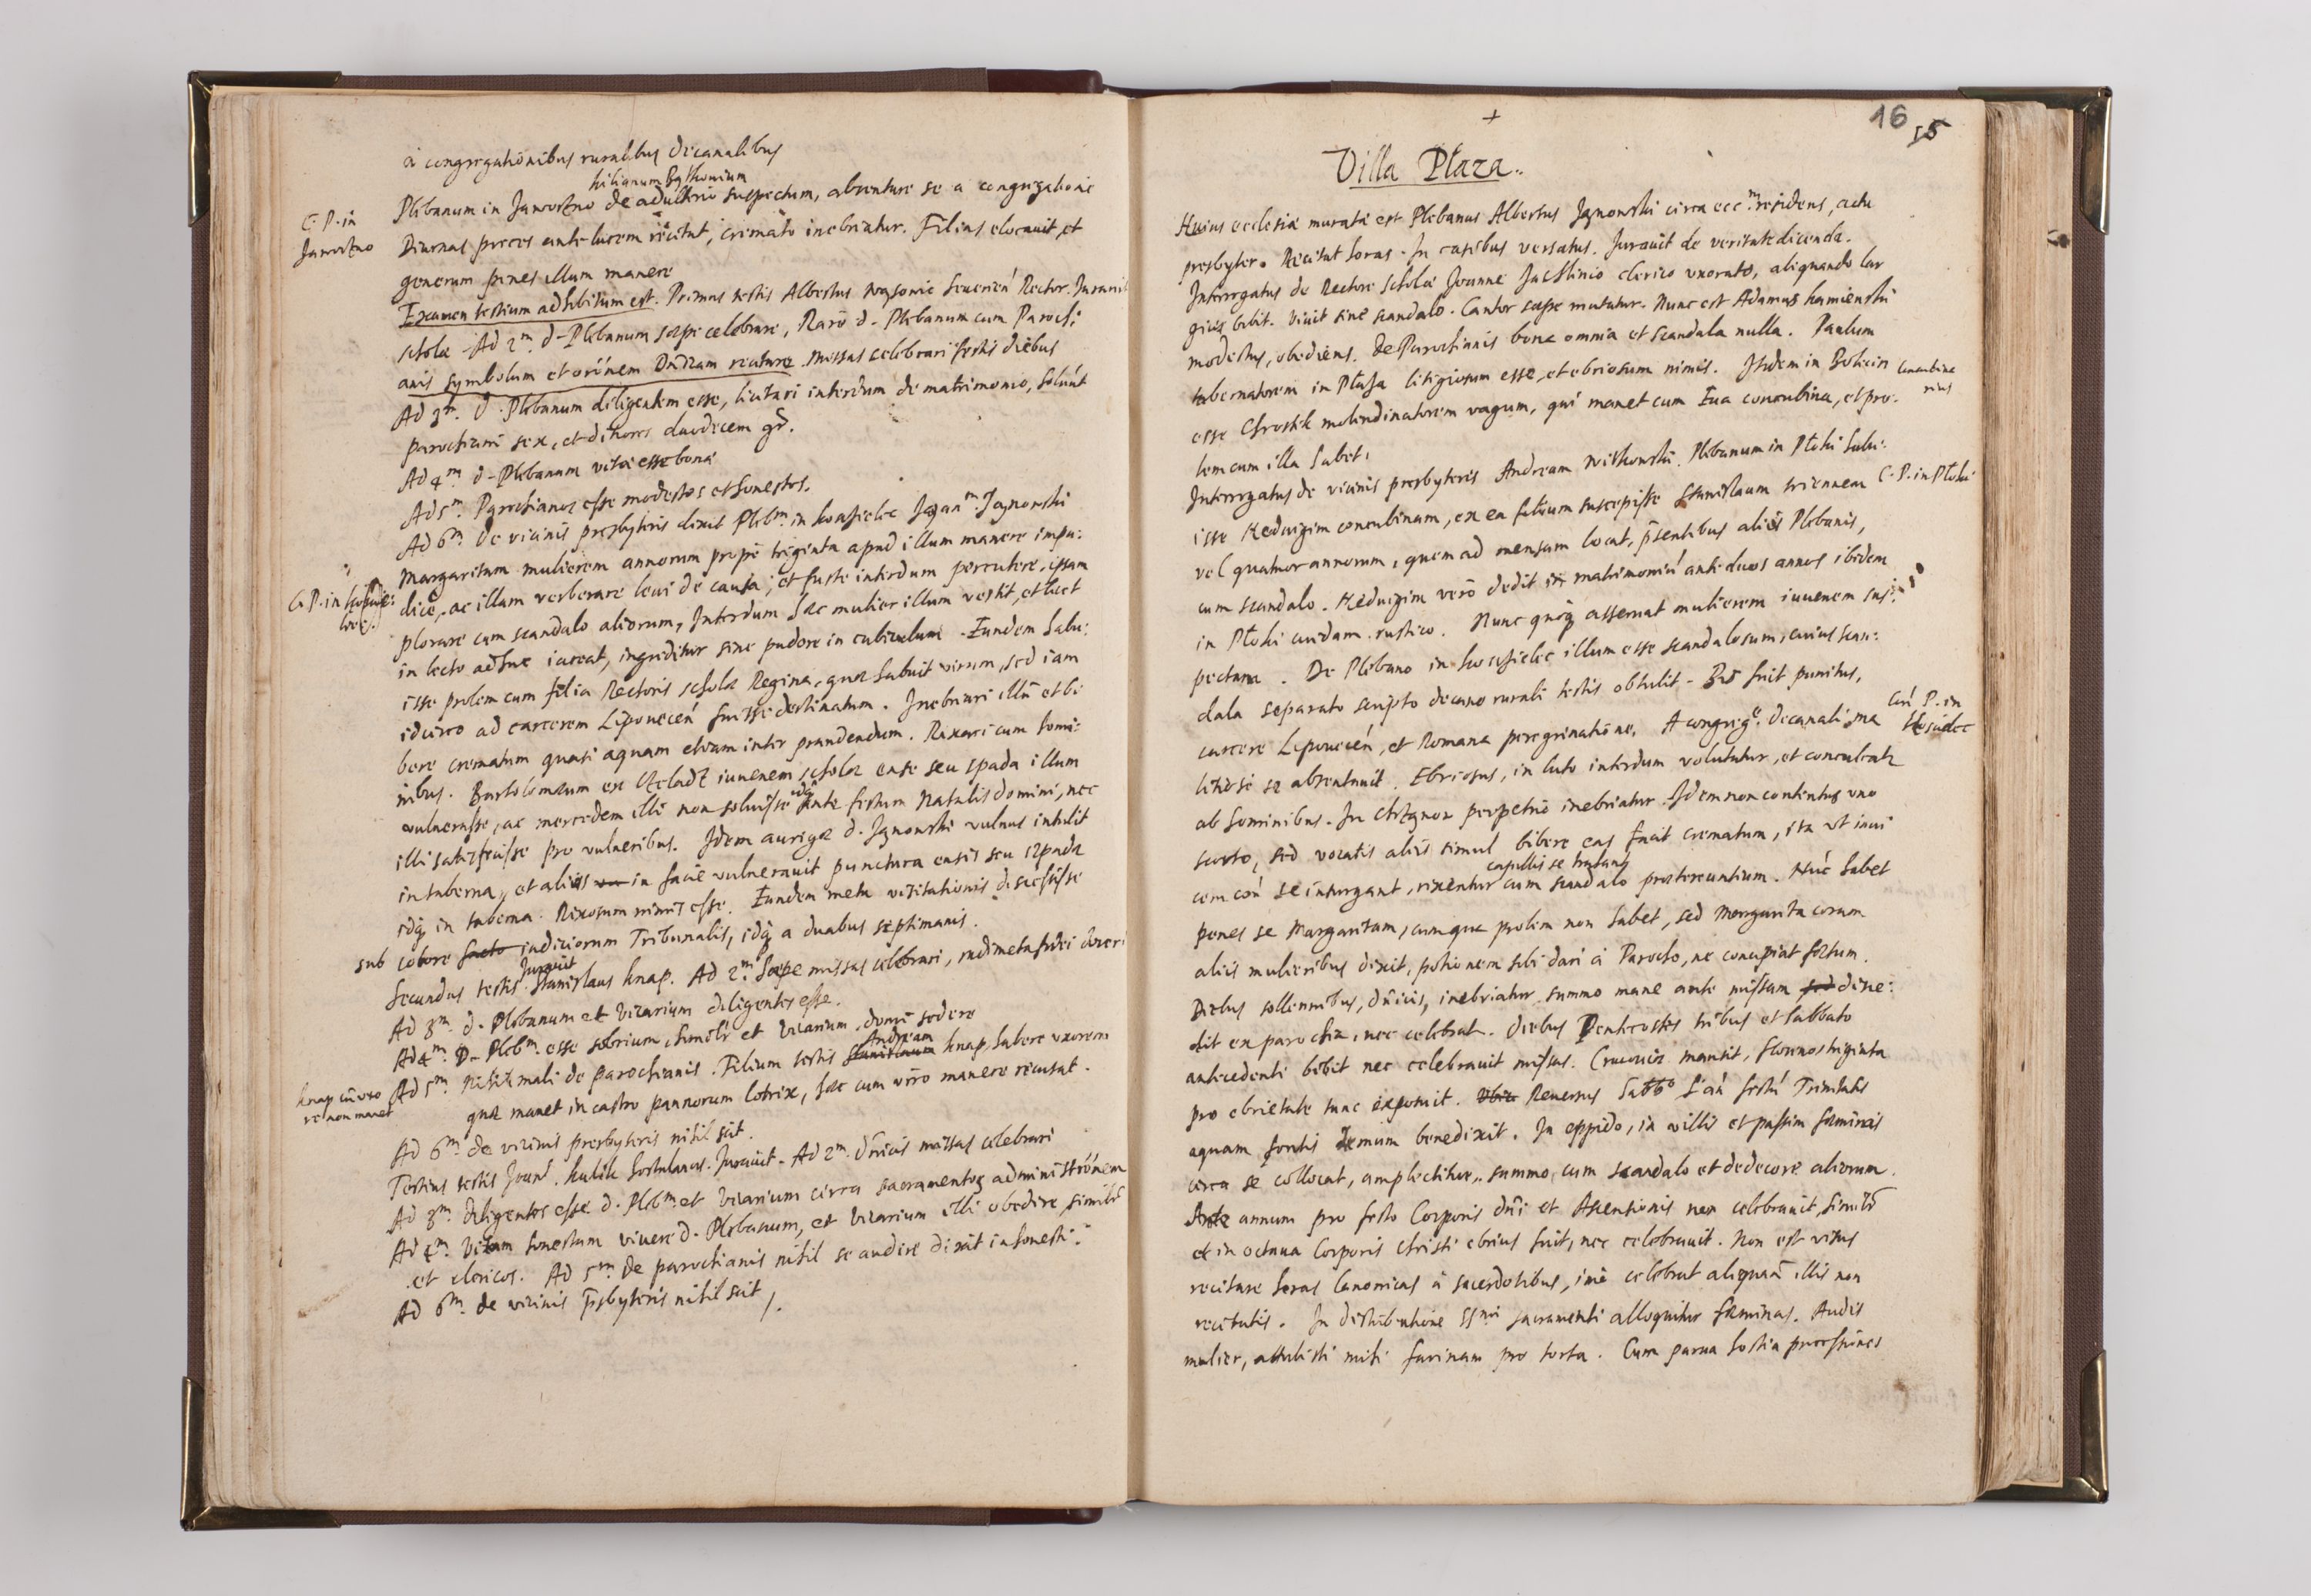 à congregationibus ruralibus decanalibus
C. P. in
Jaworzno
kilianum
Plebanum in Jaworzno de adulterio suspectum, absentare se a congregatione
Diurnas preces ante lucem recitat, cremato inebriatur. Filias elocauit, et
generum penes illum manere
Examen testium adhibitum est. Primus testis Albertus Seuerien̄ Rector. Jurauit
scholæ Ad 2m. d. Plebanum sæpe celebrare, Raro d. Plebanum cum Parochi
anis symbolum et orōnem Dn̄icam recitare. Missas celebrari festis diebus
Ad 3m. d. Plebanum diligentem esse, licitari interdum de matrimonio, soluūt
parochiani sex, et ditiores duodecem gr̄.
Ad 4m d. Plebanum vitæ esse bonæ
Ad 5m. Parochianos esse modestos et honestos.
Ad 6m. de vicinis presbyteris dixit Plebm. in Jagnowski
Margaritam mulierem annorum prope triginta apud illum manere impu:
C. P. in
dicè, ac illam verberare leui de causa, et fuste interdum percutere, ipsam
plorare cum scandalo aliorum, Interdum hæc mulier illum vestit, et licet
in lecto adhuc iaceat, ingreditur sine pudore in cubiculum. Eundem habu:
isse prolem cum filia Rectoris scholæ Regina, quæ habuit virum, sed iam
idcirco ad carcerem Lipouecen̄ fuisse destinatum. Inebriari illū et bi
bere crematum quasi aquam etiam inter prandendum. Rixari cum homi:
nibus. Bartolomæum ex Czeladz iuuenem scholæ ense seu spada illum
vulnerasse, ac mercedem illi non soluisse idq́ ante festum Natalis domini, nec
illi satisfecisse pro vulneribus. Idem aurigæ d. Jgnowski vulnus intulit
in taberna, et alias in facie vulnerauit punctura ensis seu spadæ
idq́ in taberna. Rixosum nimis esse. Eundem metu visitationis discessisse
sub colore facto iudiciorum Tribunalis, idq́ a duabus septimanis.
Jurauit
Secundus testis Stanislaus knap. Ad 2m. Sæpe missas celebrari, rudimeta fidei doceri
Ad 3m. d. Plebanum et vicarium diligentes esse.
Ad 4m. D. Plebm. esse sobrium, similr et vicarium, domi sedere
Andream
Ad 5m Nihil mali de parochianis. Filium testis Stanislaum knap, habere vxorem
knap cū vxo
re non manet
quæ manet in castro pannorum lotrix, hæc cum viro manere recusat.
Ad 6m. de vicinis presbyteris nihil scit.
Tertius testis Joan̄. kulik hortulanus. Jurauit. Ad 2m. dn̄icis missas celebrari
Ad 3m. diligentes esse d. Plebm et vicarium circa sacramentor̄ administrōnem
Ad 4m. Vitam honestam viuere d. Plebanum, et vicarium illi obedire, similr̄
et clericos. Ad 5m de parochianis nihil se audire dixit inhonesti.
Ad 6m. de vicinis p̄sbyteris nihil scit /.
+
16 15
Villa Płaza.
Huius ecclesiæ muratæ est Plebanus Albertus Jgnowski circa eccm. residens, actu
presbyter. Recitat horas. In casibus versatus. Jurauit de veritate dicenda.
Interrogatus de Rectore scholæ Joanne clerico vxorato, aliquando lar
gius bibit. Viuit sine scandalo. Cantor sæpe mutatur. Nunc est Adamus kamienski
modestus, obediens. De Parochianis bona omnia et scandala nulla. Paulum
tabernatorem in Płaza litigiosum esse, et ebriosum nimis. Ibidem in
concubina
rius
esse Chrostek molendinatorem vagum, qui manet cum Eua concubina, et pro-
lem cum illa habet.
Interrogatus de vicinis presbyteris Andream Witkowski Plebanum in Płoki habu:
C. P. in Płoki
isse Heduigim concubinam, ex ea filium suscepisse Stanislaum triennem
vel quatuor annorum, quem ad mensam locat, p̄sentibus aliis Plebanis,
cum scandalo. Heduigim vero dedit in matrimoniū ante duos annos ibidem
in Płoki cuidam rustico. Nunc quoq́ asseruat mulierem iuuenem sus:
pectam. De Plebano in illum esse scandalosum, cuius scan:
dala separato scripto decano rurali testis obtulit. Bis fuit punitus,
Con̄ P. in
carcere Lipouecen̄, et Romana peregrinatiōne. A congrege. decanali ma
litiose se absentauit. Ebriosus, in luto interdum volutatur, et conculcatr
ab hominibus. In perpetuo inebriatur. Idem non contentus vno
scorto, sed vocatis aliis simul bibere eas facit crematum, ita vt inui
capillis se trahant
cem se iniurgant, rixentur cum scandalo prætereuntium. Nūc habet
penes se Margaritam, cum qua prolem non habet, sed Margarita coram
aliis mulieribus dixit, potionem sibi dari à Parocho, ne concipiat fœtum.
Diebus sollennibus, dn̄icis, inebriatur summo mane ante missam sed disce:
dit ex parochia, nec celebrat. Diebus Pentecostes tribus et sabbato
antecedenti bibit nec celebrauit missas. Cracouiæ mansit, florenos triginta
pro ebrietate tunc exposuit. Reuersus Sabbo festū Trinitatis
aquam fontis demum benedixit. In oppido, in villis et passim fœminas
circa se collocat, amplectitur, summo cum scandalo et dedecore aliorum.
Ante annum pro festo Corporis dn̄i et Ascensionis non celebrauit, similr̄
et in octaua Corporis Christi ebrius fuit, nec celebrauit. Non est visus
recitare horas Canonicas à sacerdotibus, imo celebrat aliquan̄ illis non
recitatis. In distributione SSmi sacramenti alloquitur fœminas. Audis
mulier, attulisti mihi farinam pro torta. Cum parua hostia processiones